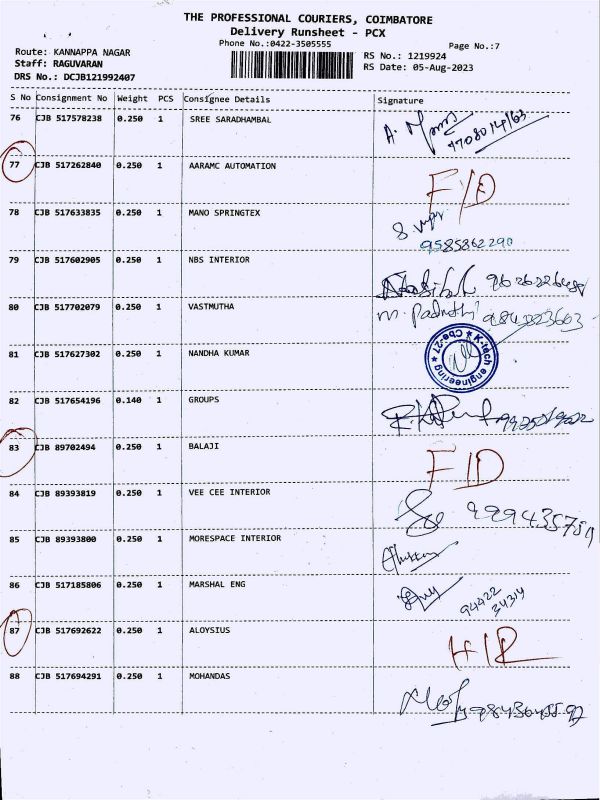 THE PROFESSIONAL COURIERS, COIMBATORE
Delivery Runsheet - PCX
Phone No.:0422-3505555
Page No.:7
Route: KANNAPPA NAGAR
Staff: RAGUVARAN
DRS No.: DCJB121992407
RS No.: 1219924
RS Date: 05-Aug-2023
S No Consignment No Weight PCS Consignee Details Signature
76 CJB 517578238 0.250 1 SREE SARADHAMBAL
77 CJB 517262840 0.250 1 AARAMC AUTOMATION F/D
78 CJB 517633835 0.250 1 MANO SPRINGTEX
9585862290
79 CJB 517602905 0.250 1 NBS INTERIOR
80 CJB 517702079 0.250 1 VASTMUTHA
81 CJB 517627302 0.250 1 NANDHA KUMAR K-tech engineering Cbe-27
82 CJB 517654196 0.140 1 GROUPS
83 CJB 89702494 0.250 1 BALAJI F/D
84 CJB 89393819 0.250 1 VEE CEE INTERIOR
85 CJB 89393800 0.250 1 MORESPACE INTERIOR
86 CJB 517185806 0.250 1 MARSHAL ENG
94422
34314
87 CJB 517692622 0.250 1 ALOYSIUS H/R
88 CJB 517694291 0.250 1 MOHANDAS